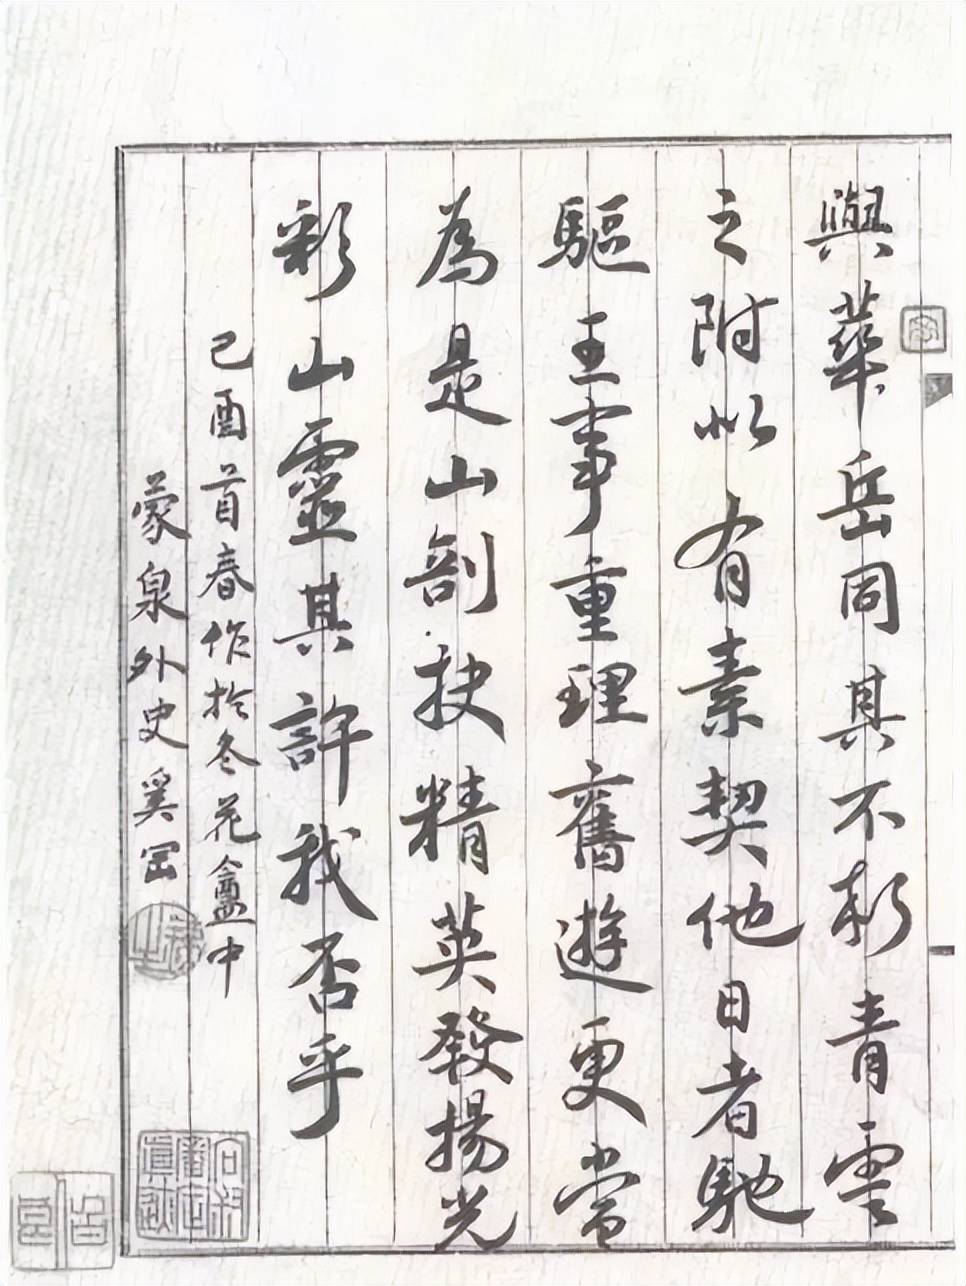 與華岳同其不朽青雲
之附以有素契他日者馳
驅王事重理舊遊更當
為是山剖抉精英發揚光
彩山靈其許我否乎
己酉首春作於冬花盦中
蒙泉外史奚岡